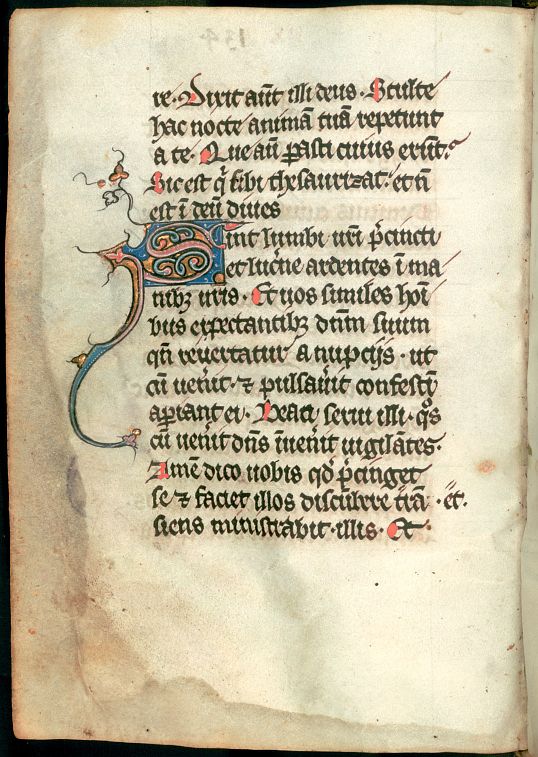 re. Dixit aūt illi deus. Stulte
hac nocte animā tuā repetunt
a te. Que aūt ꝑasti cuius erūt.
Sic est q̄ sibi thesaurizat. et nō
est ī deū diues
Sint lumbi urī p̄cincti
et lucˀne ardentes ī ma
nibꝫ uris. Et uos similes hoī
bus expectantibꝫ dnm̄ suum
qn̄ reuertatur a nupcijs. ut
cū uenˀit. ⁊ pulsauˀit confestī
aꝑiant ei. Beati serui illi. qͦs
cū uenˀit dn̄s īuenˀit uigilātes.
Amē dico uobis qd̄ p̄cinget
se ⁊ faciet illos discūbere trā .et.
siens ministrabit. illis. Et